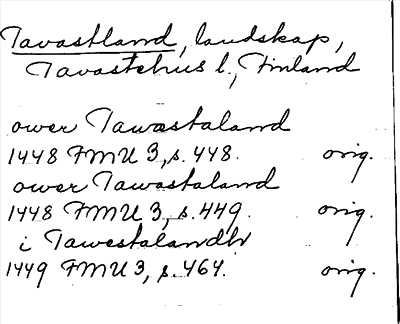 Tavastland, landskap,
Tavastehus l., Finland
ower Tawastaland
1448 FMU 3, s. 448. orig.
ower Tawastaland
1448 FMU 3, s. 449. orig.
i Tawestalandh
1449 FMU 3, s. 464. orig.